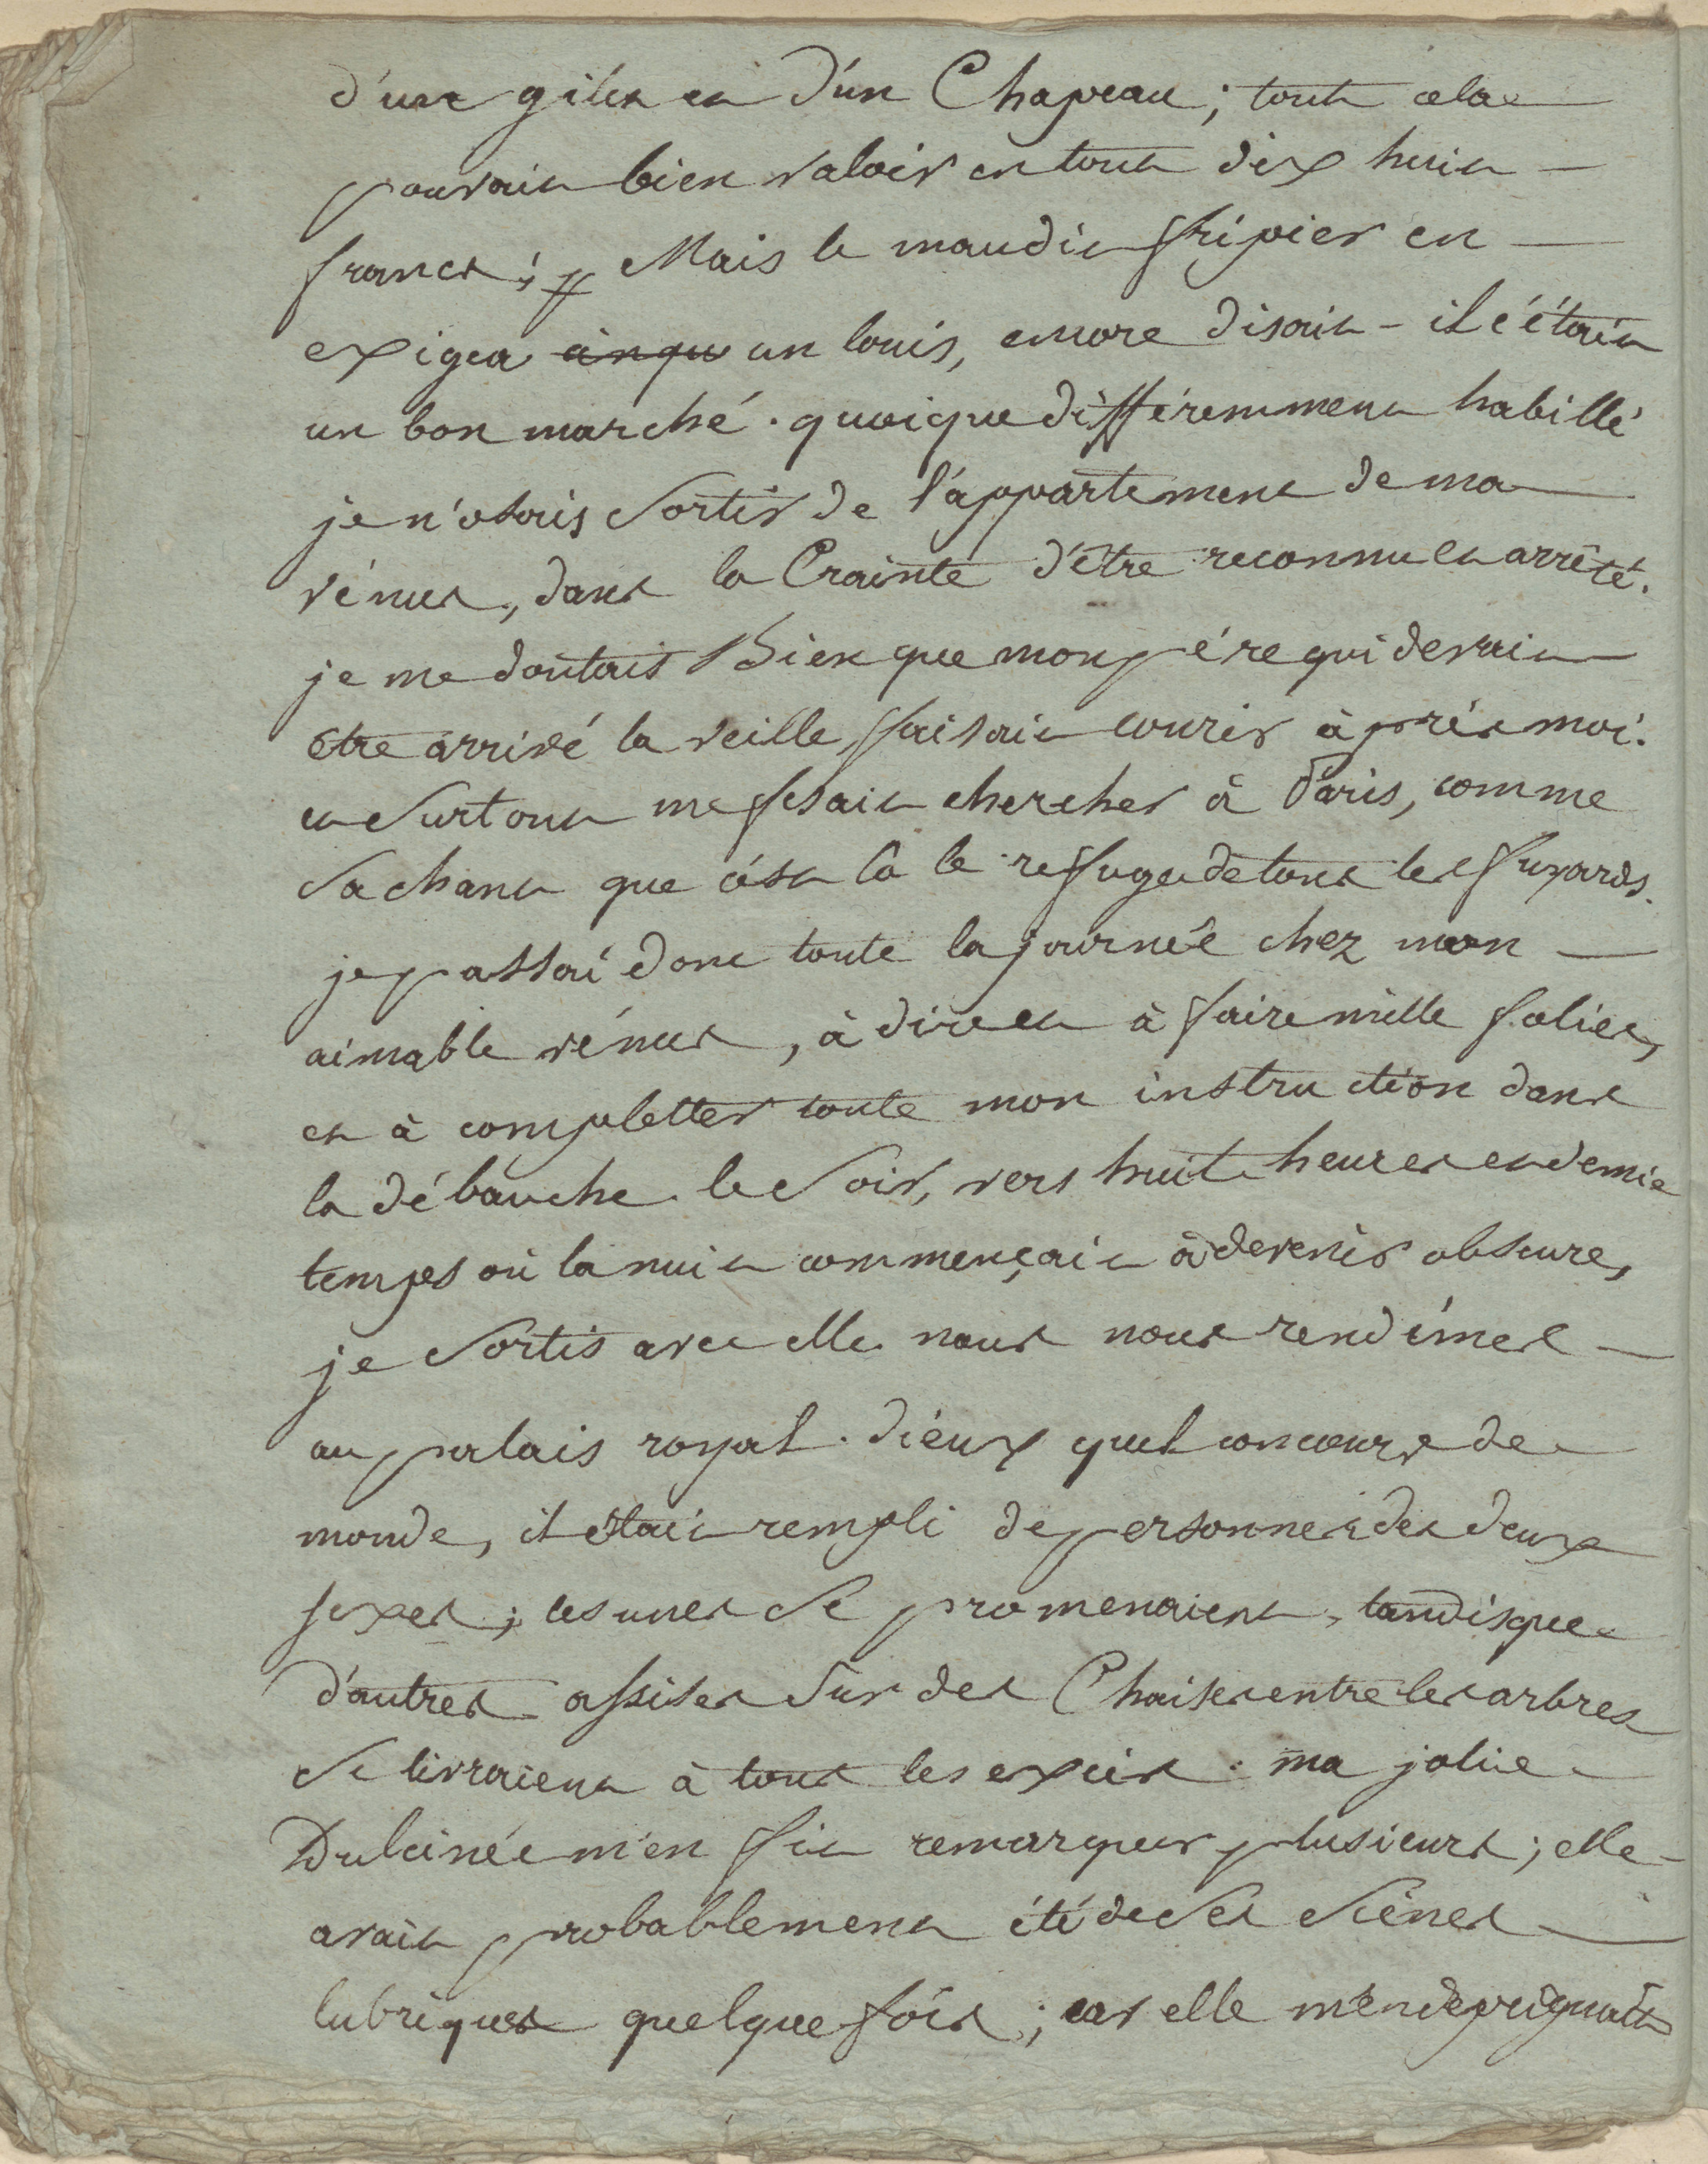 d'un gilet et d'un Chapeau ; tout cela
pouvait bien valoir en tout dix huit
francs ; Mais le maudit fripier en
exigea cinqu un louis, encore disait-il c'étoit
un bon marché . quoique différemment habillé
je n'osais sortir de l'appartement de ma
vénus, dans la Crainte d'être reconnu et arrêté.
je me doutais Bien que mon pére qui devait
être arrivé la veille, faisait courir après moi.
et surtout me fesait chercher à Paris, comme
sachant que c'est là le refuge de tous les fuyards.
je passai donc toute la journée chez mon
aimable vénus, à dire et à faire mille folies,
et à completter toute mon instruction dans
la débauche. le soir, vers huit heures et demie
temps où la nuit commençait à devenir obscure,
je sortis avec elle. nous nous rendîmes
au palais royal . dieux quel concours de
monde, il était rempli de personnes des deux
sexes ; les unes se promenaient, tandisque
d'autres assises sur des Chaises entre les arbres
se livraient à tous les excès . ma jolie
Dulcinée m'en fit remarquer plusieurs ; elle
avait probablement été de ses scènes
lubriques quelque fois ; car elle m'en depeignait